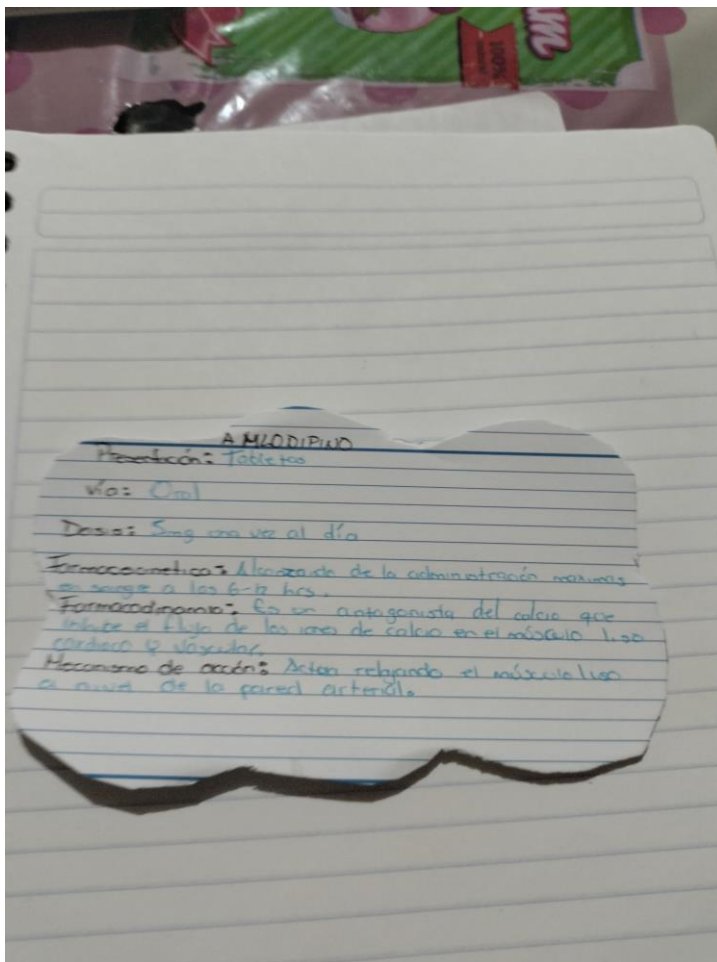 100%
um
AMLODIPINO
Presentación: Tabletas
Vía: Oral
Dosis: 5mg una vez al día
Farmacocinetica: Alcanzado de la administración maximas
en sangre a las 6-12 hrs.
Farmacodinamia: Es un antagonista del calcio que
inhibe el flujo de los iones de calcio en el músculo liso
cardiaco y vascular.
Mecanismo de acción: Actua relajando el músculo liso
a nivel de la pared arterial.